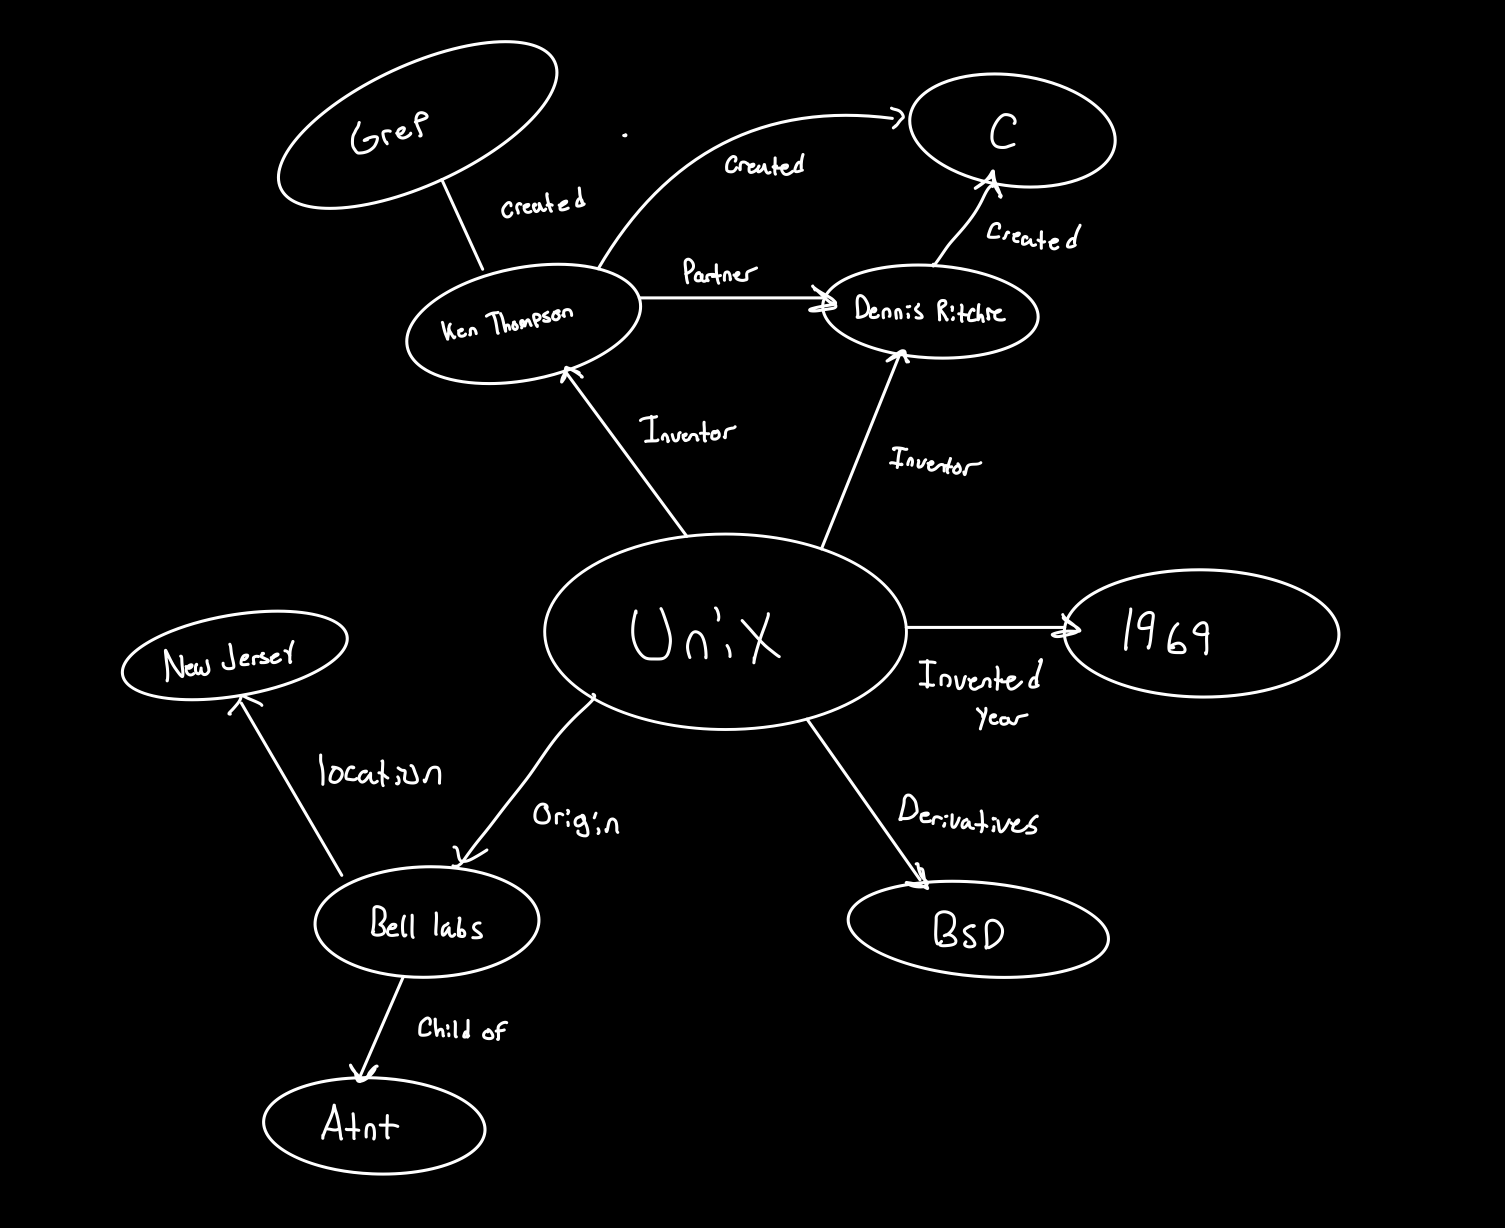 Grep
C
Created
created
Created
Partner
Ken Thompson
Dennis Ritchie
Inventor
Inventor
Unix
1969
New Jersey
Invented
year
location
Origin
Derivatives
Bell labs
BSD
Child of
Atnt